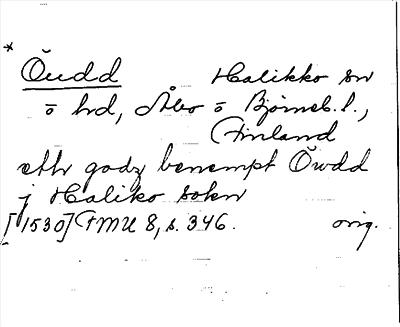 *
Öudd Halikko sn
ö hd, Åbo ö Björneb. l.,
Finland
eth godz benempt Öwdd
j Haliko sokn
[1530] FMU 8, s. 346. orig.